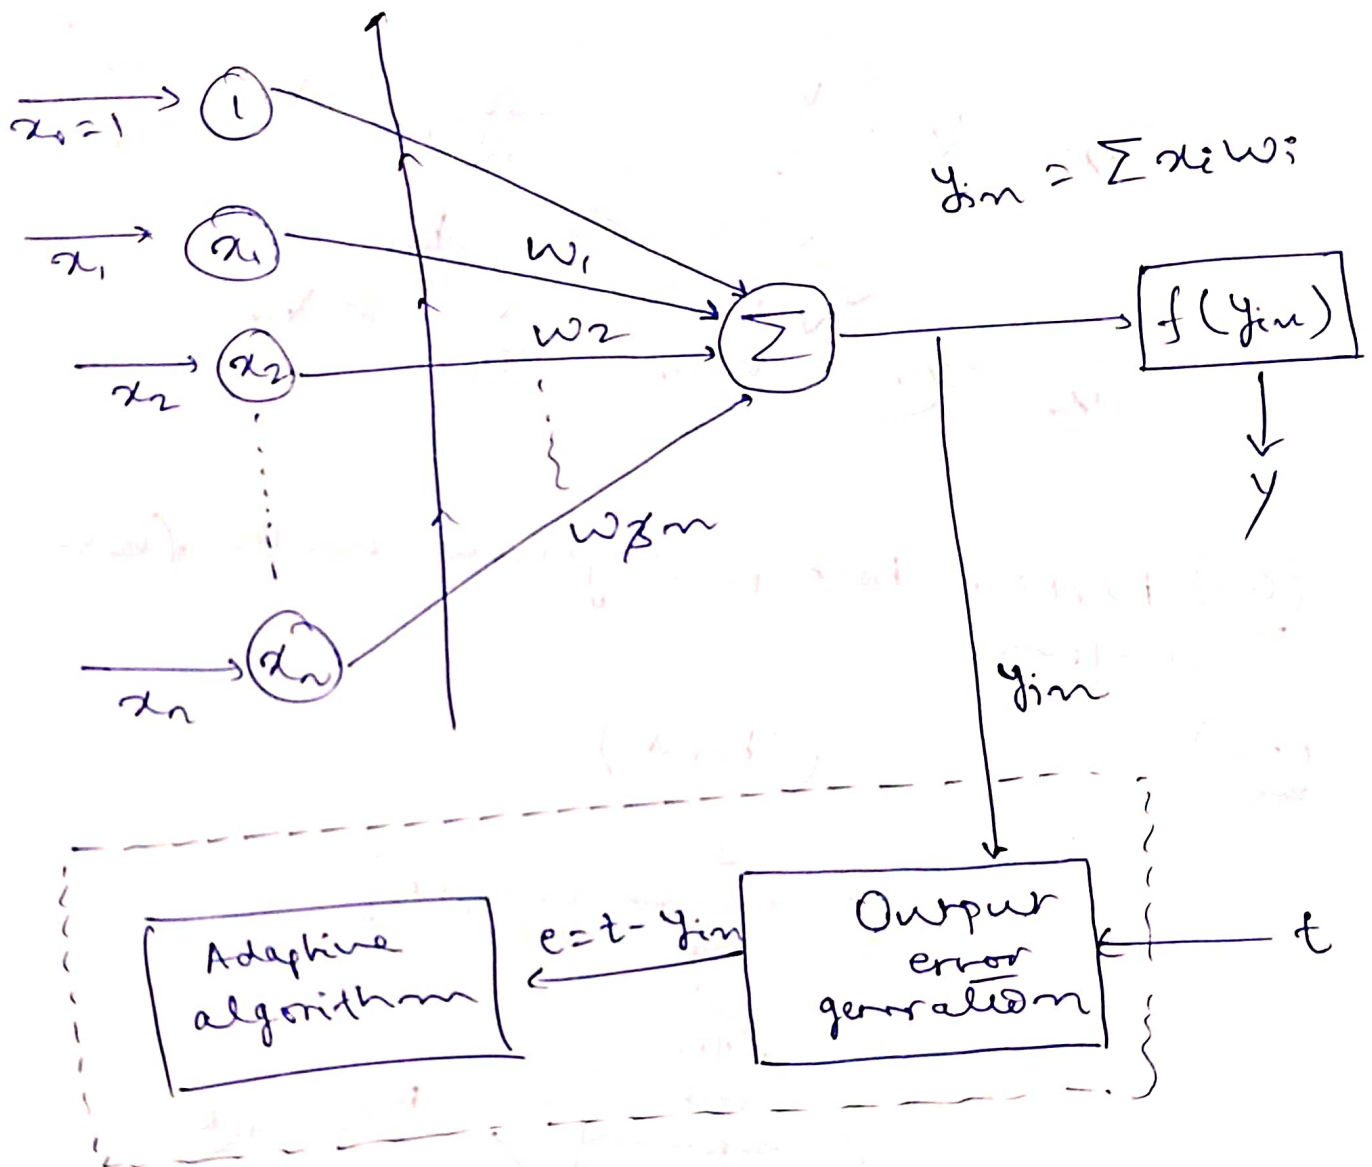 x₀=1
1
x₁
x₁
w₁
x₂
x₂
w2
wn
xₙ
xₙ
Σ
yin = Σ xi wi
f(yin)
y
yin
Output
error
generation
t
e=t-yin
Adaptive
algorithm